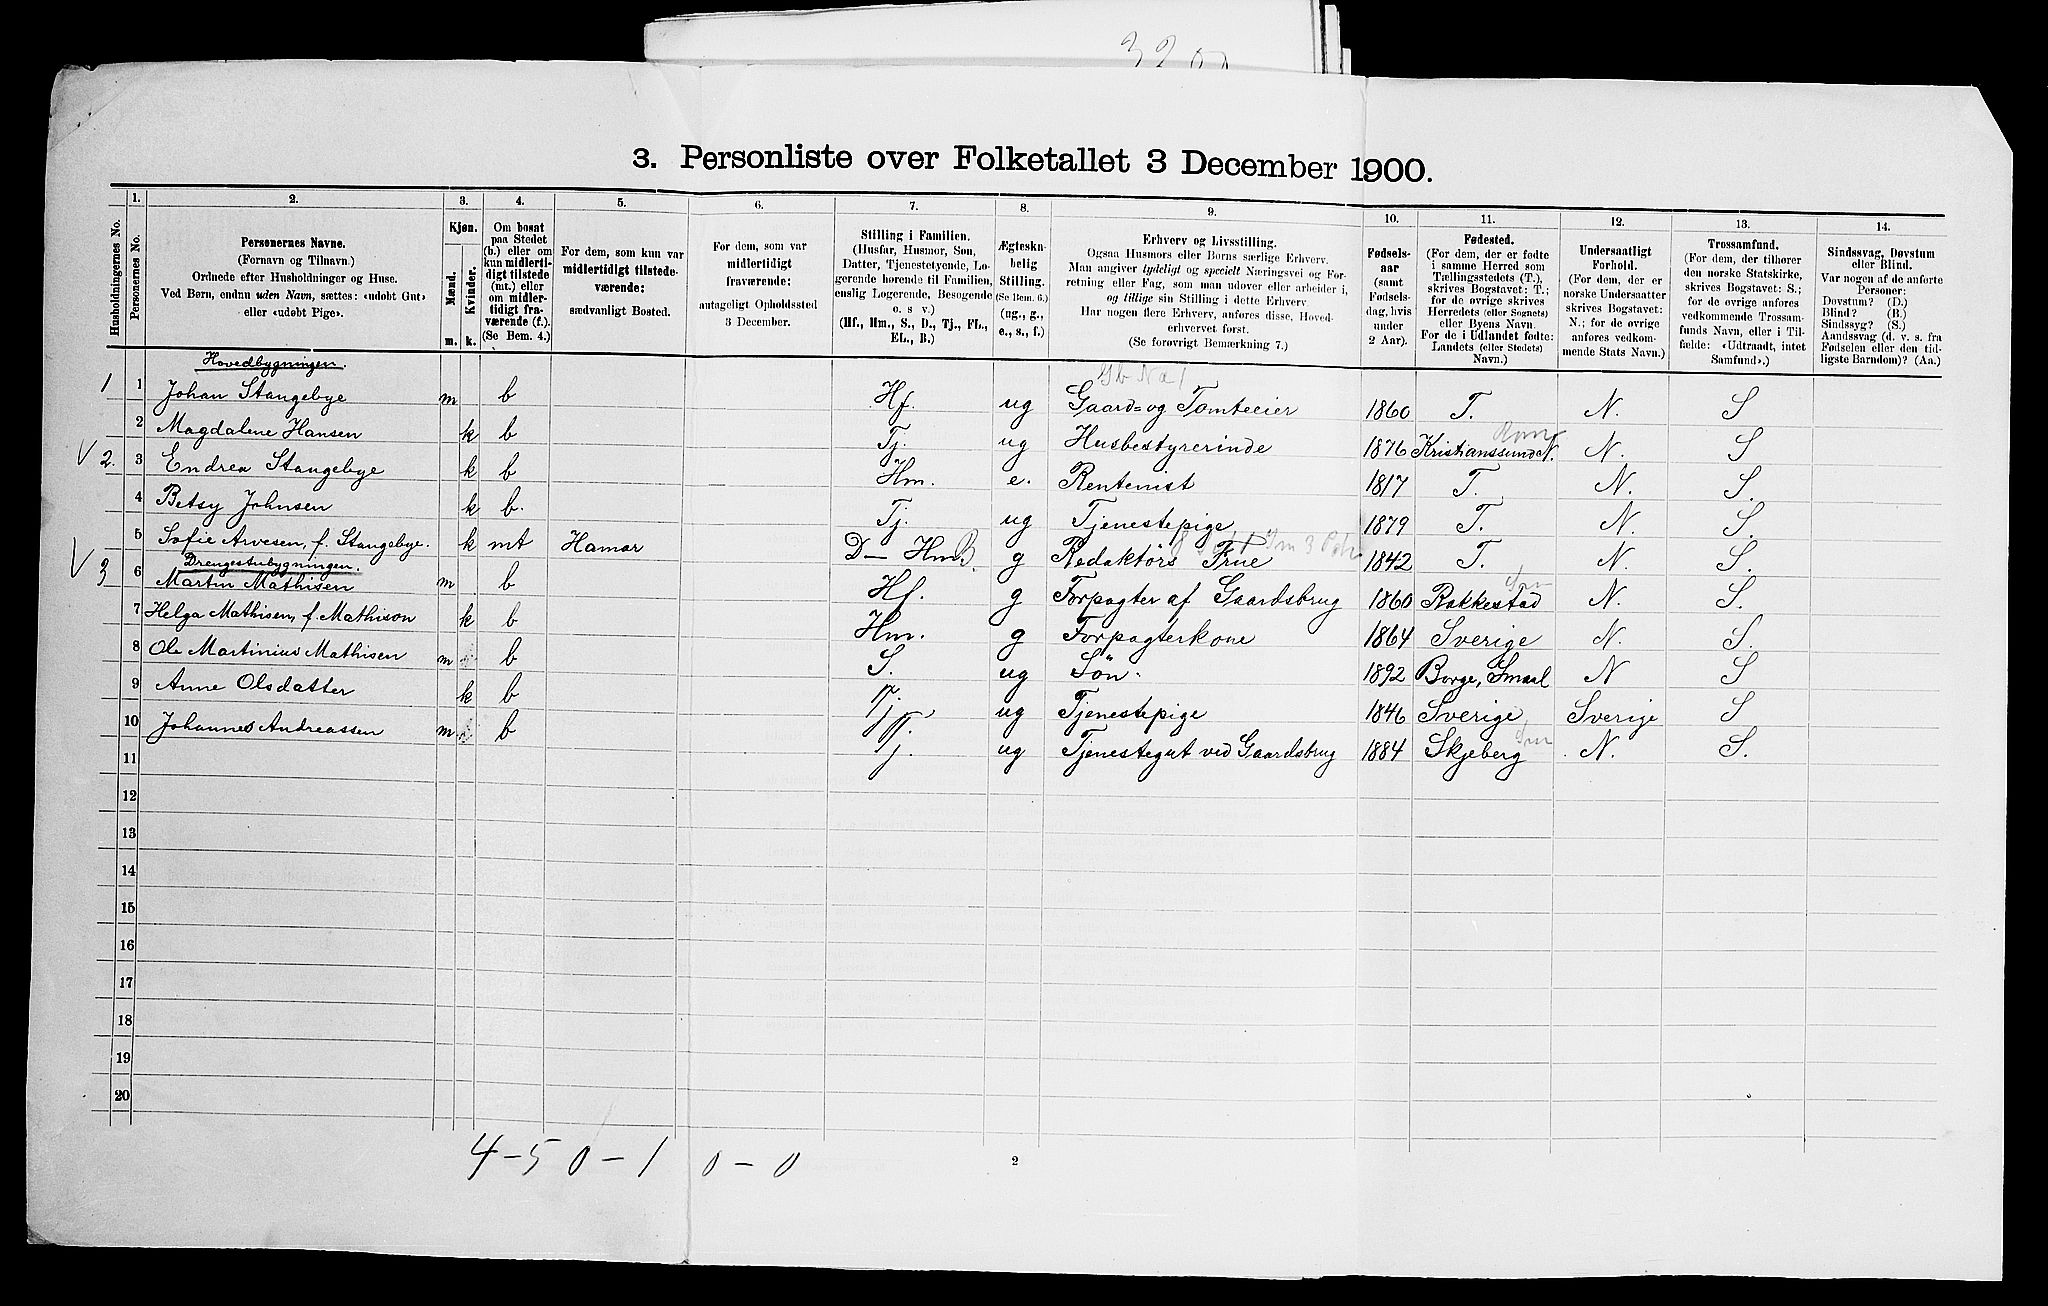 3. Personliste over Folketallet 3 December 1900.
Husholdningernes No.
1.
Personernes No.
2.
Personernes Navne.
(Fornavn og Tilnavn.)
Ordnede efter Husholdninger og Huse.
Ved Børn, endnu uden Navn, sættes: «udøbt Gut»
eller «udøbt Pige».
3.
Kjøn.
Mænd.
Kvinder.
m. k.
4.
Om bosat
paa Stedet
(b.) eller om
kun midlerti-
digt tilstede
(mt.) eller
om midler-
tidigt fra-
værende (f.).
(Se Bem. 4.)
5.
For dem, som kun var
midlertidigt tilstede-
værende:
sædvanligt Bosted.
6.
For dem, som var
midlertidigt
fraværende:
antageligt Opholdssted
3 December.
7.
Stilling i Familien.
(Husfar, Husmor, Søn,
Datter, Tjenestetyende, Lo-
gerende hørende til Familien,
enslig Logerende, Besøgende
o. s v.)
(Hf., Hm., S., D., Tj., FL.,
EL., B.)
8.
Ægteska-
belig
Stilling.
(Se Bem. 6.)
(ug., g.,
e., s., f.)
9.
Erhverv og Livsstilling.
Ogsaa Husmors eller Børns særlige Erhverv.
Man angiver tydeligt og specielt Næringsvei og For-
retning eller Fag, som man udøver eller arbeider i,
og tillige sin Stilling i dette Erhverv.
Har nogen flere Erhverv, anføres disse, Hoved-
erhvervet først.
(Se forøvrigt Bemærkning 7.)
10.
Fødsels-
aar
(samt
Fødsels-
dag, hvis
under
2 Aar).
11.
Fødested.
(For dem, der er fødte
i samme Herred som
Tællingsstedets (T.),
skrives Bogstavet: T.;
for de øvrige skrives
Herredets (eller Sognets)
eller Byens Navn.
For de i Udlandet fødte:
Landets (eller Stedets)
Navn.)
12.
Undersaatligt
Forhold.
(For dem, der er
norske Undersaatter
skrives Bogstavet:
N.; for de øvrige
anføres vedkom-
mende Stats Navn.)
13.
Trossamfund.
(For dem, der tilhører
den norske Statskirke,
skrives Bogstavet: S.;
for de øvrige anføres
vedkommende Trossam-
funds Navn, eller i Til-
fælde: «Udtraadt, intet
Samfund».)
14.
Sindssvag, Døvstum
eller Blind.
Var nogen af de anførte
Personer:
Døvstum? (D.)
Blind? (B.)
Sindssyg? (S.)
Aandssvag (d. v. s. fra
Fødselen eller den tid-
ligste Barndom)? (Aa.)
Hovedbygningen.
Gb No 1
1 1 Johan Stangebye m b Hf. ug Gaard- og Tomteeier 1860 T. N. S
2 Magdalene Hansen k b Tj. ug Husbestyrerinde 1876 Kristianssund N. N. S
V 2. 3 Endrea Stangebye k b Hm. e. Rentenist 1817 T. N. S.
4 Betsy Johnsen k b. Tj. ug Tjenestepige 1879 T. N. S.
5 Sofie Arvesen, f. Stangebye. k mt Hamar D— Hm B. g Redaktørs Frue 1842 T. N. S.
Drengestubygningen.
V 3 6 Martin Mathisen m b Hf. g Forpagter af Gaardsbrug 1860 Rakkestad N. S.
7 Helga Mathisen, f. Mathison k b Hm. g Forpagterkone 1864 Sverige N. S.
8 Ole Martinius Mathisen m b S. ug Søn. 1892 Borge, Smaal N S
9 Anne Olsdatter k b Tj. ug Tjenestepige 1846 Sverige Sverige S
10 Johannes Andreassen m b Tj. ug Tjenestegut ved Gaardsbrug 1884 Skjeberg N. S.
11
12
13
14
15
16
17
18
19
20
4-5 0-1 0-0
2